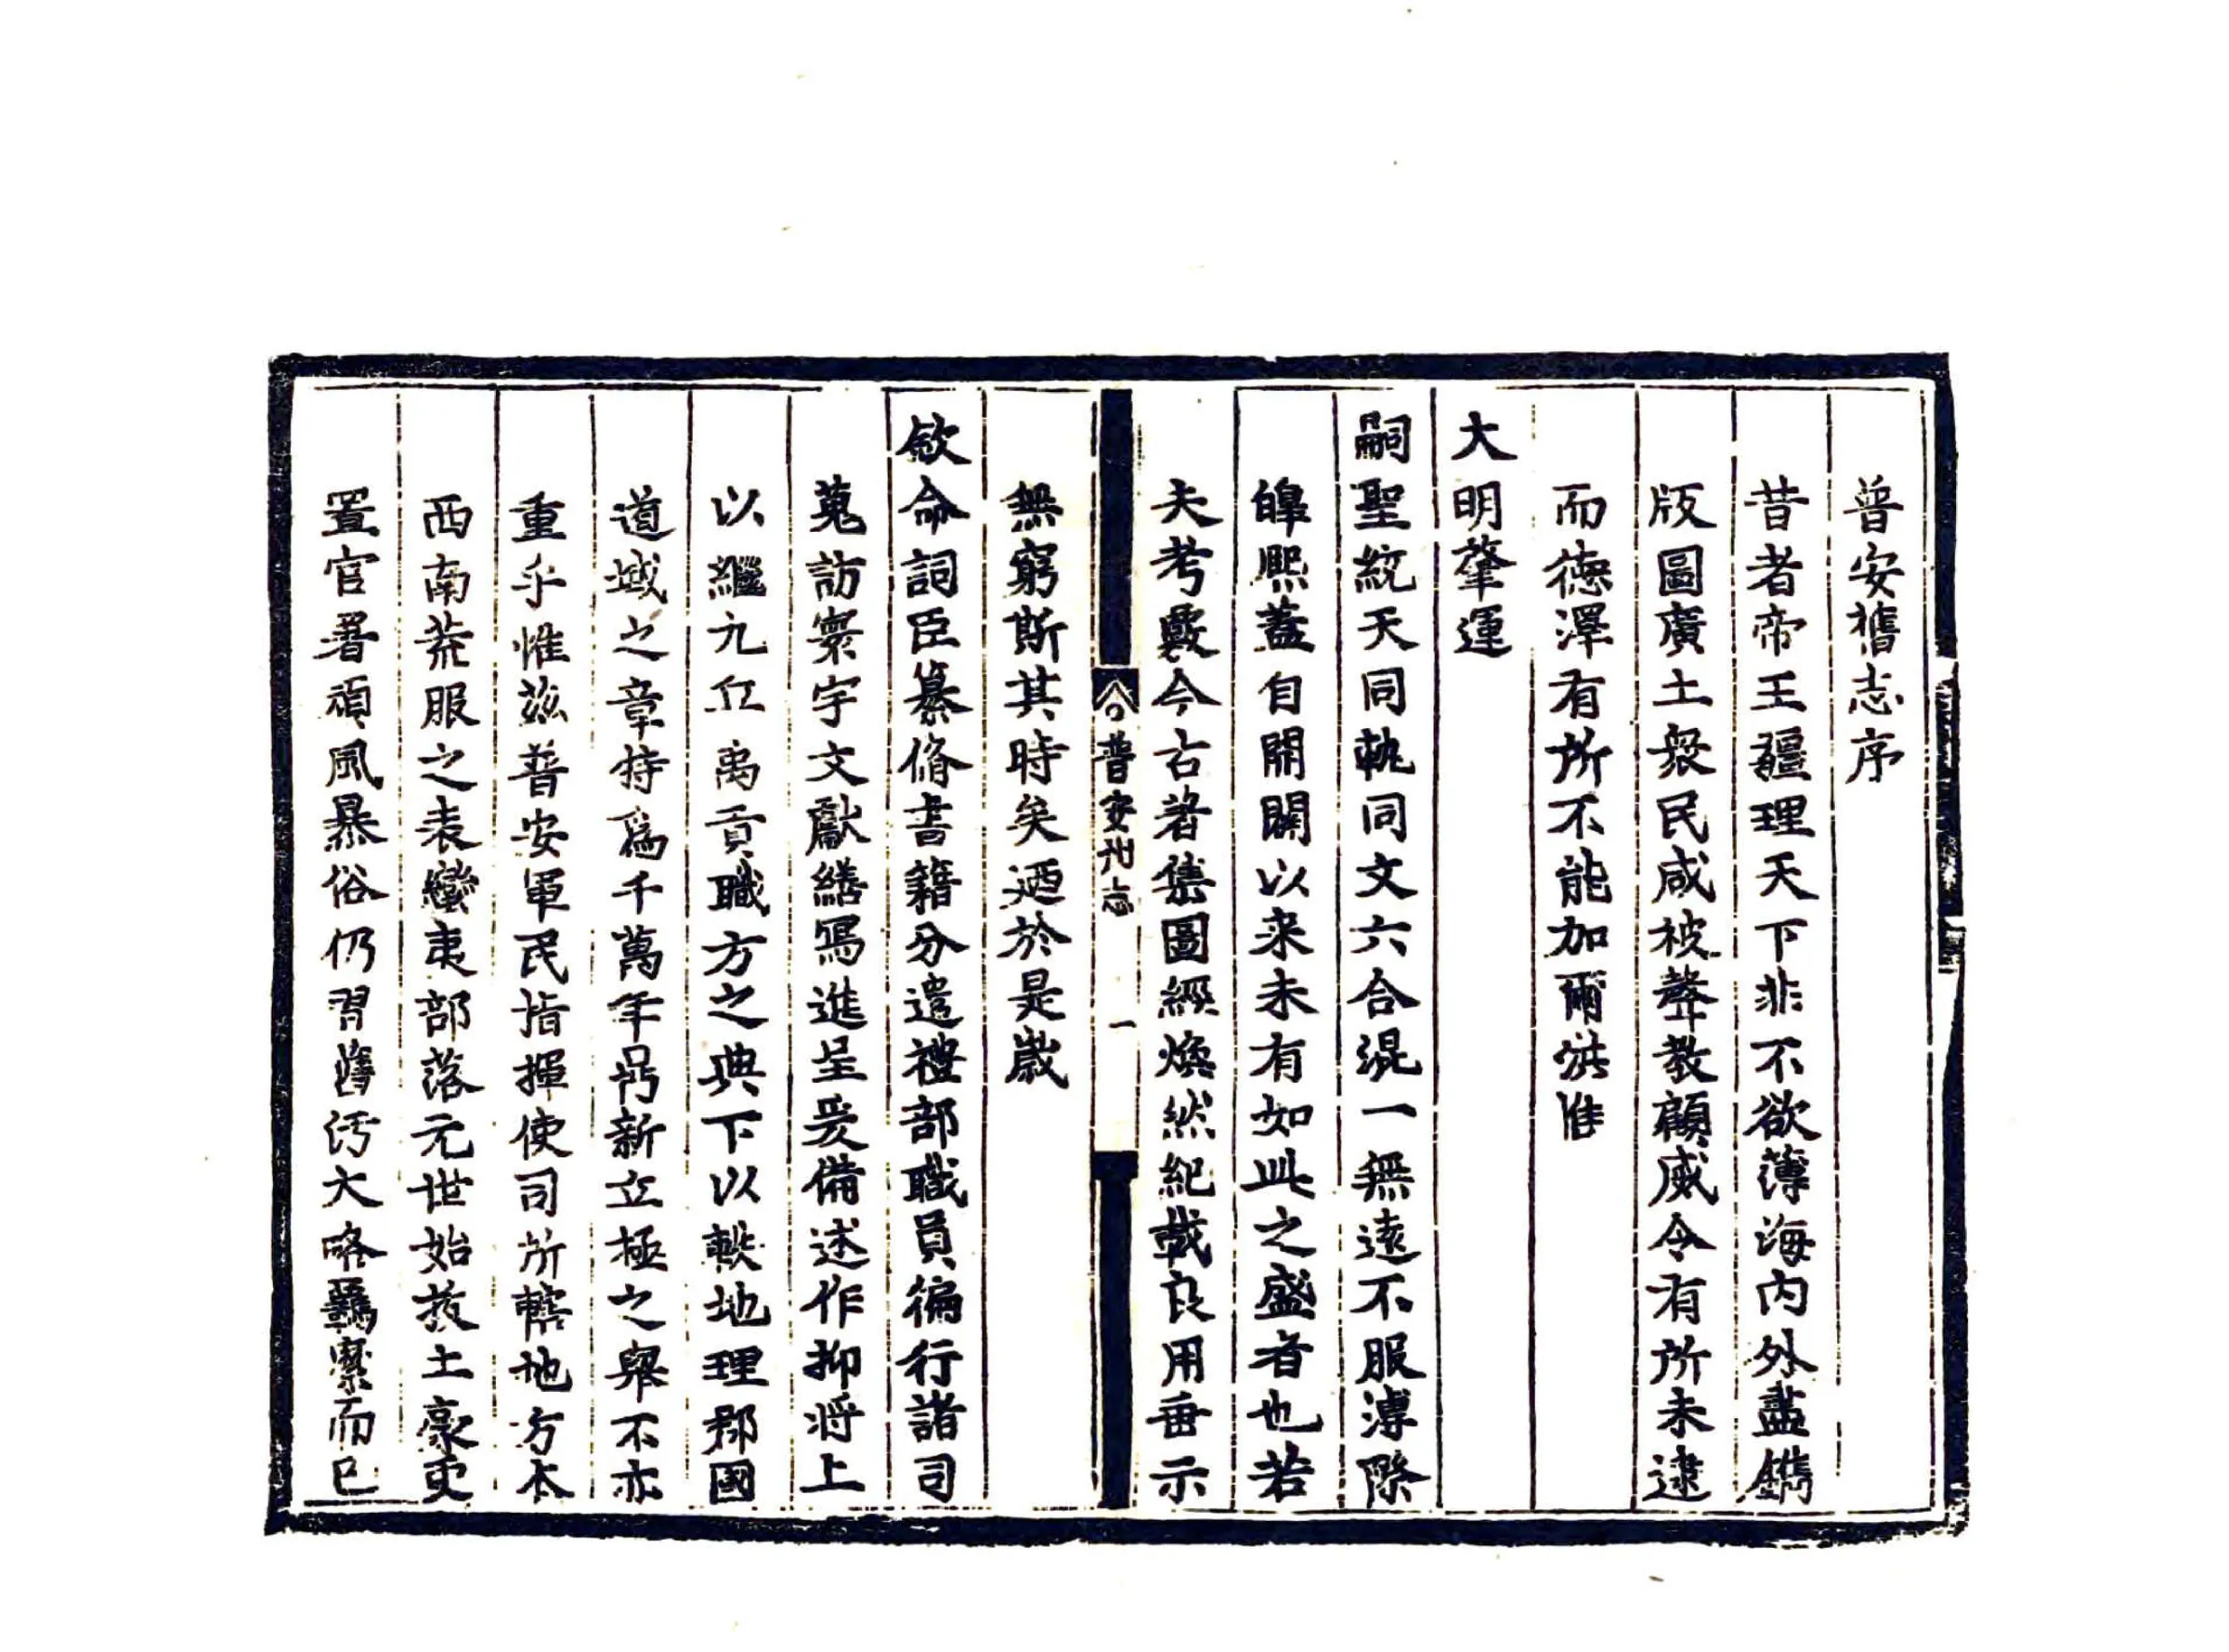 普安舊志序
昔者帝王疆理天下非不欲薄海内外盡鐫
版圖廣土衆民咸被聲教顧威令有所未逮
而德澤有所不能加爾洪惟
大明肇運
嗣聖統天同軌同文六合混一無遠不服溥際
皥熙蓋自開闢以来未有如此之盛者也若
夫考覈今古著集圖經煥然紀載良用垂示
普安州志 一
無窮斯其時矣廼於是歲
欽命詞臣纂脩書籍分遣禮部職員徧行諸司
蒐訪寰宇文獻繕寫進呈爰備述作抑将上
以繼九丘禹貢職方之典下以軼地理郡國
道域之章特爲千萬年昂新立極之舉不亦
重乎惟兹普安軍民指揮使司所轄地方本
西南荒服之表蠻夷部落元世始拔土豪吏
置官署頑風暴俗仍習舊汚大略羈縻而已